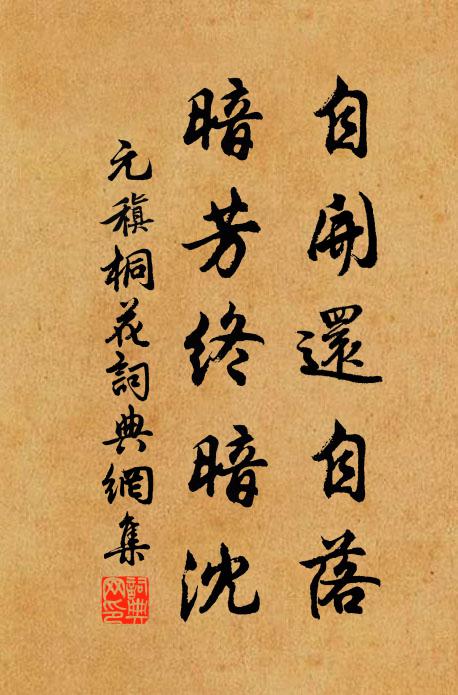 自開還自落
暗芳終暗沈
元稹桐花詞典網集
詞典網印